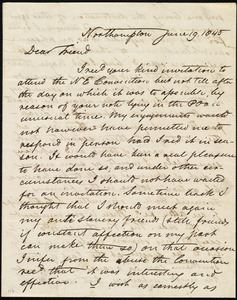 Northampton June 19, 1845
Dear Friend
I recd your kind invitation to
attend the N E Convention but not till after
the day on which it was to assemble, by
reason of your note lying in the P Office an
unusual time. My engagements would
not however have permitted me to
respond in person had I recd it in sea-
son. It would have been a real pleasure
to have done so, and under other cir
cumstances I should not have waited
for an invitation. Sometime back I
thought that I should meet again
my anti slavery friends (still friends
if constant affection on my part
can make them so) on that occasion
I infer from the abuse the Convention
recd that it was interesting and
effective. I wish as earnestly as